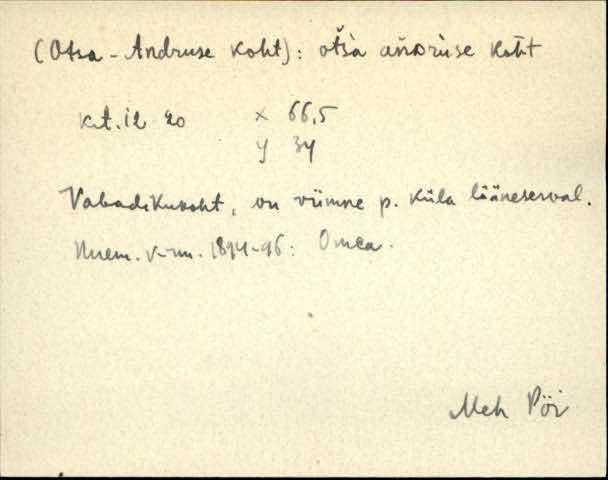 (Otsa-Andruse koht): ot̆s̀a añdrùse kot̆t
k.t. 12 20 x 66,5
y 34
Vabadikukoht, on viimne p. küla lääneserval.
v-nn. 1894-96:
Meh Pöi